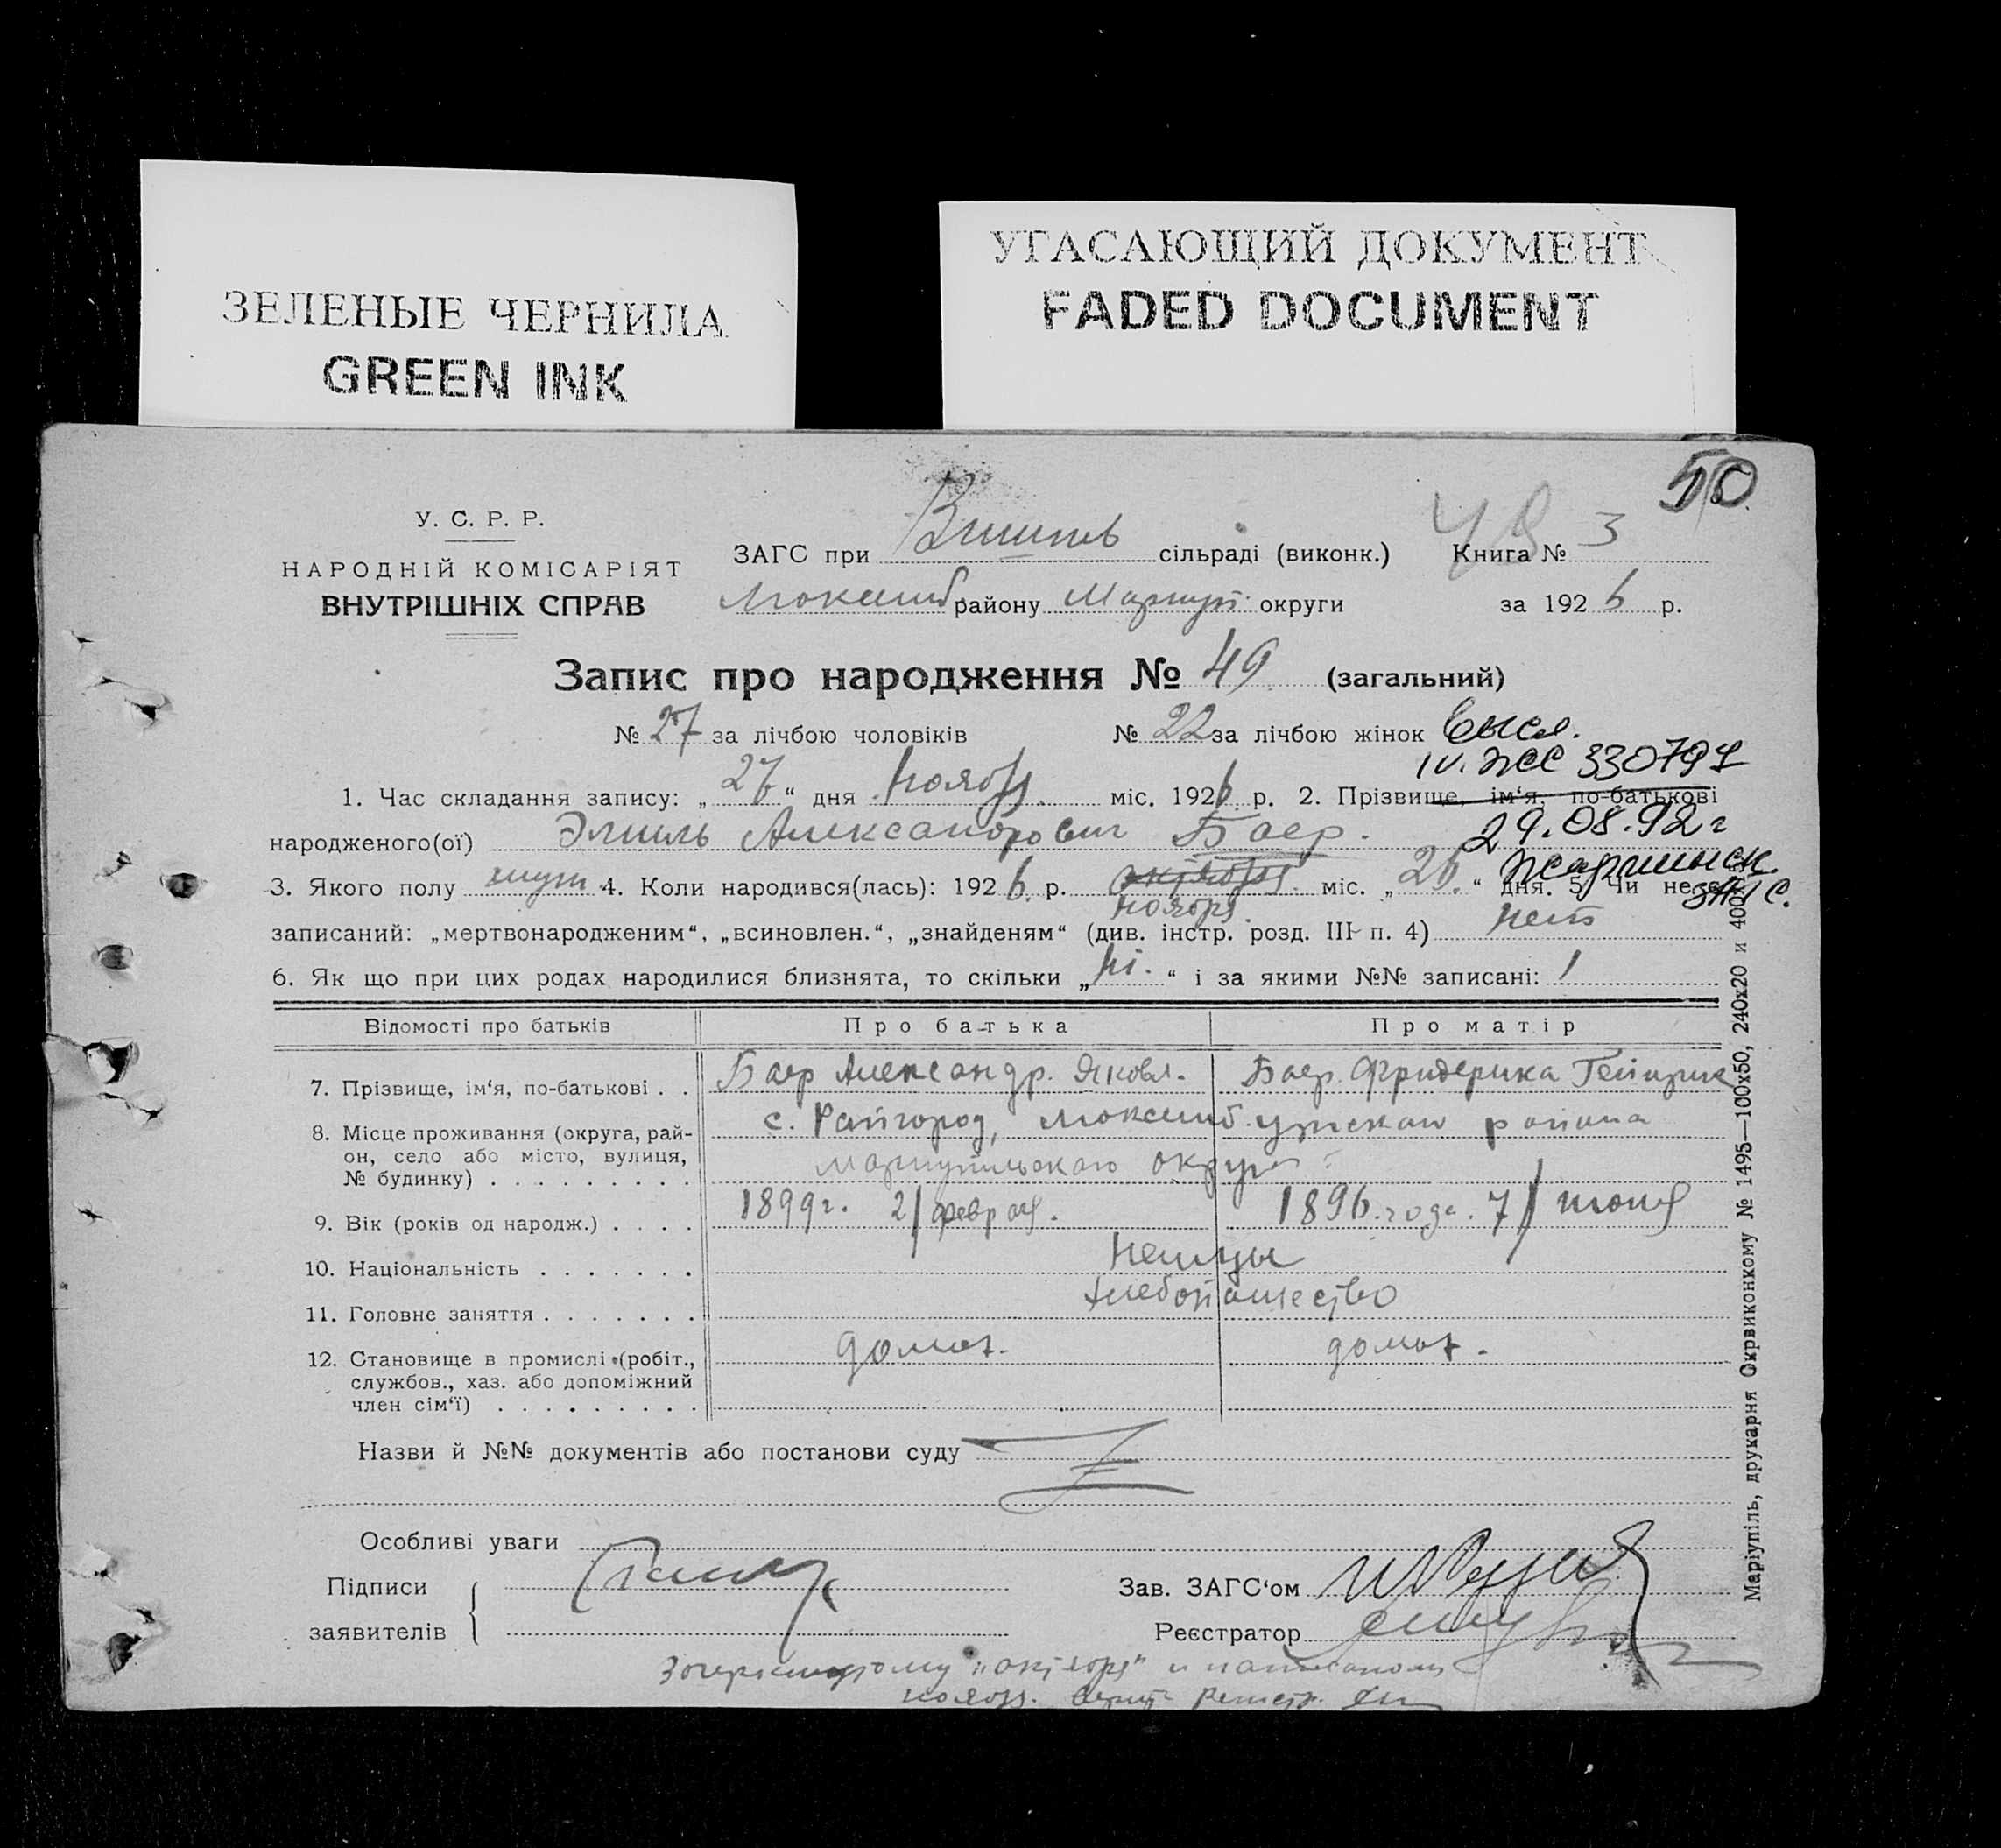 ЗЕЛЕНЫЕ ЧЕРНИЛА
GREEN INK
УГАСАЮЩИЙ ДОКУМЕНТ
FADED DOCUMENT
50
У. С. Р. Р.
НАРОДНІЙ КОМІСАРІЯТ
ВНУТРІШНІХ СПРАВ
ЗАГС при сільраді (виконк.) Книга № 3
района Мариуп. округи за 1926 р.
Запис про народження № 49 (загальний)
№ 27 за лічбою чоловіків № 22 за лічбою жінок
IV. ЖС 330797
1. Час складання запису: „27“ дня ноября міс. 1926 р. 2. Прізвище, ім‘я, по-батькові
народженого(ої) Эмиль Александрович Баер. 29.08.92 г
3. Якого полу муж 4. Коли народився(лась): 1926 р. октября міс. „26.“ дня. 5. Чи не є
ноября. ЗАГС.
записаний: „мертвонародженим“, „всиновлен.“, „знайденям“ (див. інстр. розд. III п. 4) нет
6. Як що при цих родах народилися близнята, то скільки „ні.“ і за якими №№ записані: 1
Відомості про батьків Про батька Про матір
7. Прізвище, ім‘я, по-батькові . . Баер Александр. Яковл. Баер Фридерика Гейнрих
8. Місце проживання (округа, рай- с. Райгород, района
он, село або місто, вулиця, Мариупольского округа
№ будинку) . . . . . . . . .
9. Вік (років од народж.) . . . . 1899 г. 2/февраля. 1896 года. 7/июня
10. Національність . . . . . . . немцы
11. Головне заняття . . . . . . . хлебопашество
12. Становище в промислі (робіт., домох. домох.
службов., хаз. або допоміжний
член сім‘ї) . . . . . . . . .
Назви й №№ документів або постанови суду
Особливі уваги
Підписи Зав. ЗАГС‘ом
заявителів Реєстратор
Зачеркнутому „октября“ и написаному
ноября. верить
Маріупіль, друкарня Окрвиконкому № 1495—100x50, 240x20 и 400